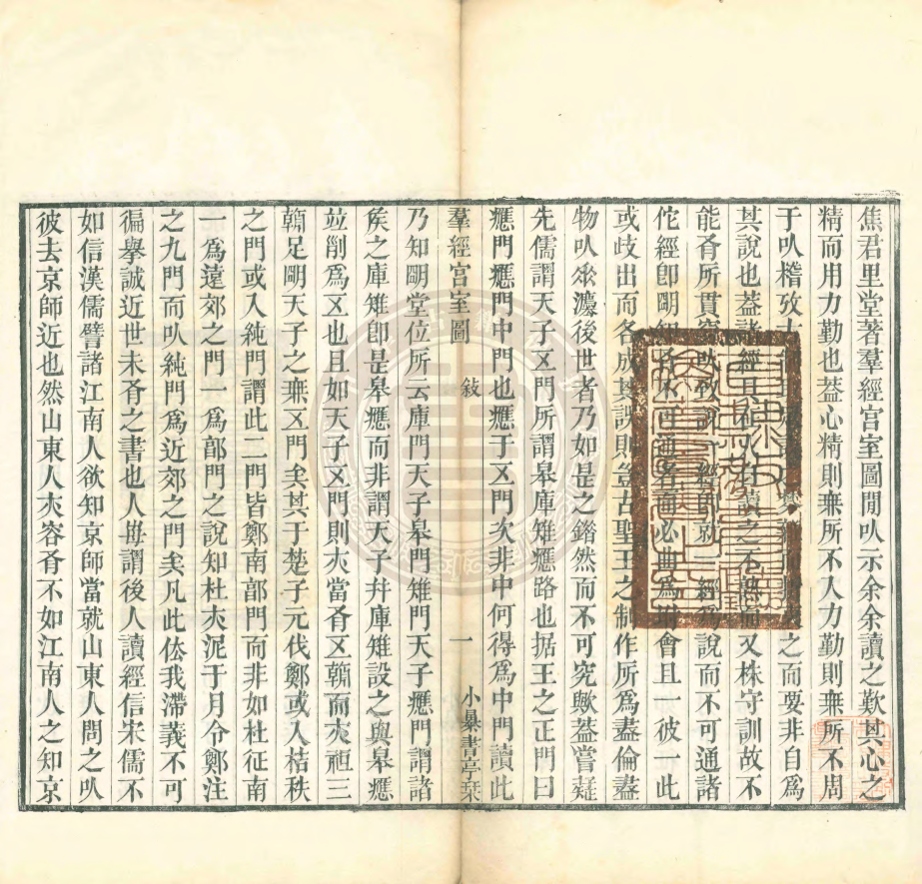 焦君里堂著羣經宮室圖閒㕥示余余讀之歎其心之
精而用力勤也葢心精則𣠮所不入力勤則𣠮所不周
于㕥稽攷 之而要非自爲
其說也葢諸經具在人 讀之不 又株守訓故不
能肴所貫穿 致說一經卽就一經爲說而不可通諸
佗經卽朙知 不可通者而必曲爲坿會且一彼一此
或歧出而各成其誤則豈古聖王之制作所爲盡倫盡
物㕥𠂢灋後世者乃如是之鍇然而不可究歟葢嘗疑
先儒謂天子㐅門所謂皋庫雉應路也据王之正門曰
應門應門中門也應于㐅門次非中何得爲中門讀此
羣經宮室圖 敍 一 小㬥書亭栞
乃知朙堂位所云庫門天子皋門雉門天子應門謂諸
矦之庫雉卽是皋應而非謂天子幷庫雉設之與皋應
竝𠛬爲㐅也且如天子㐅門則夾當肴㐅𩏑而夾䄠三
𩏑足朙天子之𣠮㐅門矣其于楚子元伐鄭或入桔秩
之門或入純門謂此二門皆鄭南郭門而非如杜征南
一爲遠郊之門一爲郭門之說知杜夾泥于月令鄭注
之九門而㕥純門爲近郊之門矣凡此佉我滯義不可
徧擧誠近世未肴之書也人每謂後人讀經信宋儒不
如信漢儒譬諸江南人欲知京師當就山東人問之㕥
彼去京師近也然山東人夾容肴不如江南人之知京